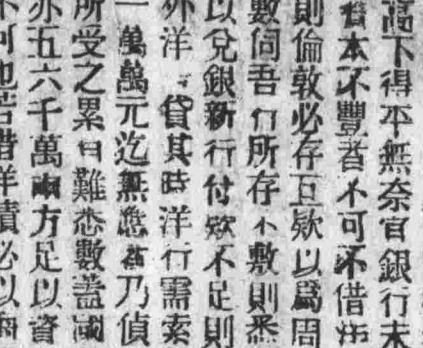 高下得平無奈官銀行未
者本不豐者不可不借
則倫敦必存巨欵以爲周
數倘吾行所存不敷則悉
以兌銀新行付欵不足則
外洋貸其時洋行需索
一萬萬元迄無應者乃偵
所受之累曰難悉數蓋國
亦五六千萬兩方足以資
不可也若借洋債必以